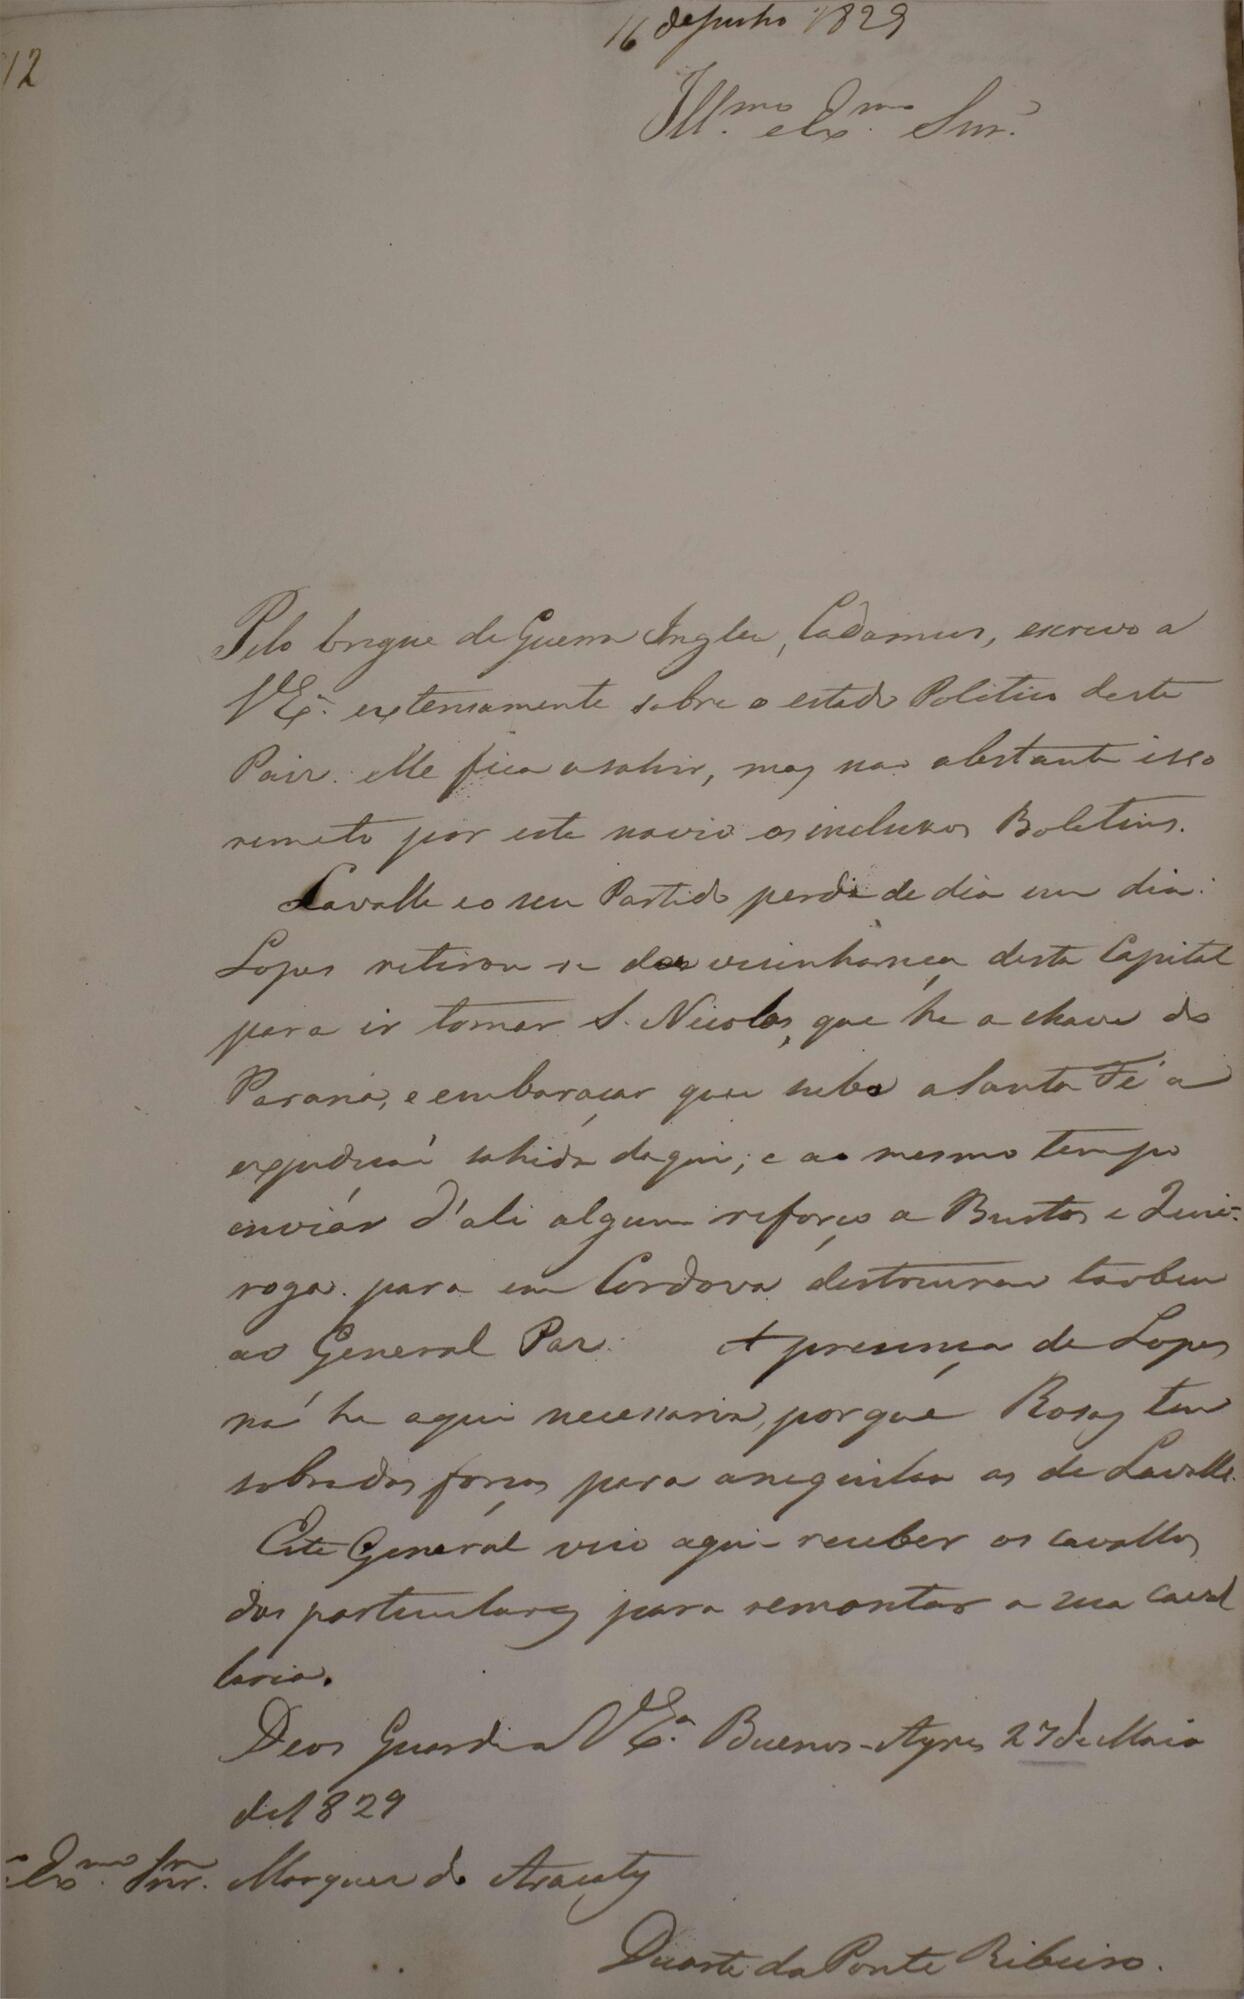 16 de Junho 1829
12
Ill.mo e Ex.mo Snr.
Pelo brigue de Guerra Inglez, Cadamus, escrevo a
V Ex.ª extensamente sobre o estado Politico deste
Paiz: elle fica a sahir, mas nao obstante isso
remeto por este navio os inclusos Boletins.
Lavalle e o seu Partido perde de dia em dia:
Lopes retirou-se das visinhanças desta Capital
para ir tomar S. Nicolas, que he a chave do
Paraná, e embaraçar que suba a Santa Fé a
expedicaõ sahida daqui; e ao mesmo tempo
enviár d'ali algum reforço a Bustos e Qui-
roga para em Cordova destruirem tãobem
ao General Paz. A presença de Lopes
naõ he aqui necessaria, porque Rosas tem
sobradas forças para aneguilar as de Lavalle.
Este Generál veio aqui receber os cavallos
dos particulares para remontar a sua caval
laria.
Deos Guarde a V Ex.ª Buenos-Ayres 27 de Maio
de 1829
Ex.mo Snr. Marquez do Aracaty
Duarte da Ponte Ribeiro.